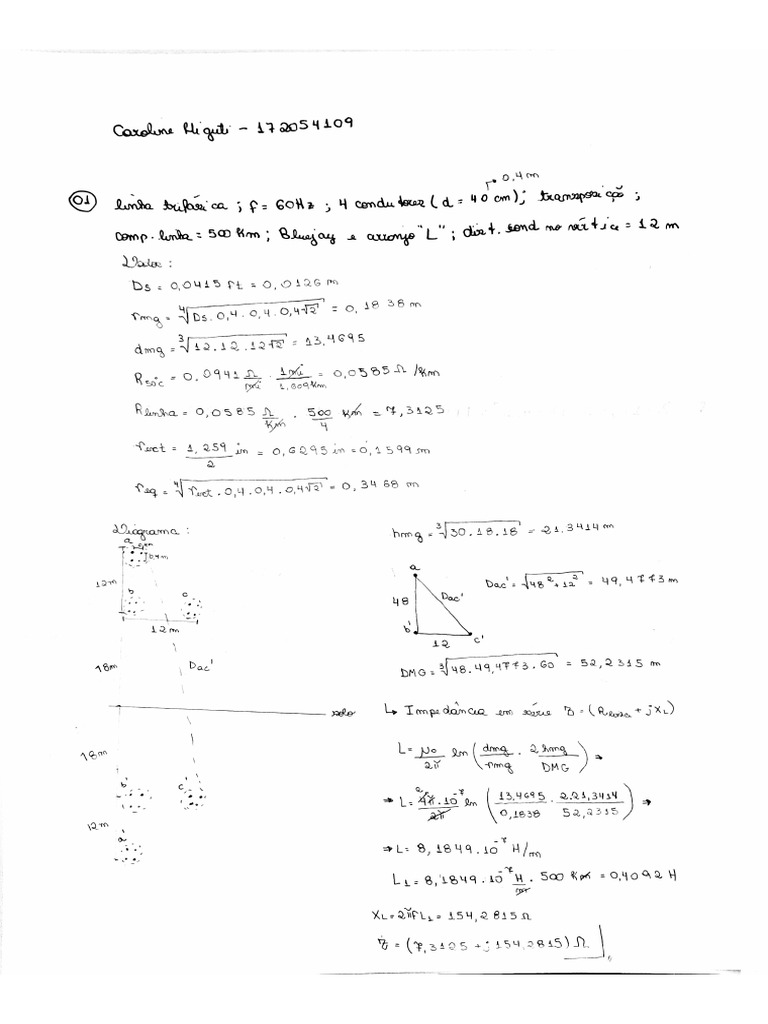 Caroline Higuti - 172054109
0.4m
01 linha trifásica ; f = 60Hz ; 4 condutores (d = 40 cm); transposição ;
comp. linha = 500 Km ; Bluejay e arranjo "L" ; dist. cond no vértice = 12 m
Dados :
Ds = 0,0415 ft = 0,0126 m
rmg = ⁴√(Ds. 0,4 . 0,4. 0,4√2) = 0, 1838 m
dmg = ³√(12. 12. 12√2) = 13,4695
R50°C = 0.0941 Ω/mi . 1mi/1,609km = 0,0585 Ω /Km
Rlinha = 0,0585 Ω/Km . 500/4 Km = 7,3125
rext = 1, 259/2 in = 0,6295 in = 0,1599 m
req = ⁴√(rext . 0,4 . 0,4 . 0,4√2) = 0, 3468 m
Diagrama :
a
0,4m
12m
b
c
12 m
18m
Dac'
solo
18m
b'
c'
12m
a'
hmg = ³√(30 . 18 . 18) = 21.3414 m
a
48
Dac'
b'
c'
12
Dac' = √(48² + 12²) = 49, 4773 m
DMG = ³√(48. 49,4773 . 60) = 52,2315 m
↳ Impedância em série Z = (Rlinha + jXL)
L = μo/2π ln (dmg/rmg . 2hmg/DMG) ⇒
⇒ L = 4π.10⁻⁷/2π 2 ln (13,4695/0,1838 . 2.21,3414/52,2315) ⇒
⇒ L = 8, 1849. 10⁻⁷ H/m
L1 = 8, 1849. 10⁻⁷ H/m . 500 Km = 0,4092 H
XL = 2πfL1 = 154, 2815 Ω
Z = (7,3125 + j 154,2815) Ω